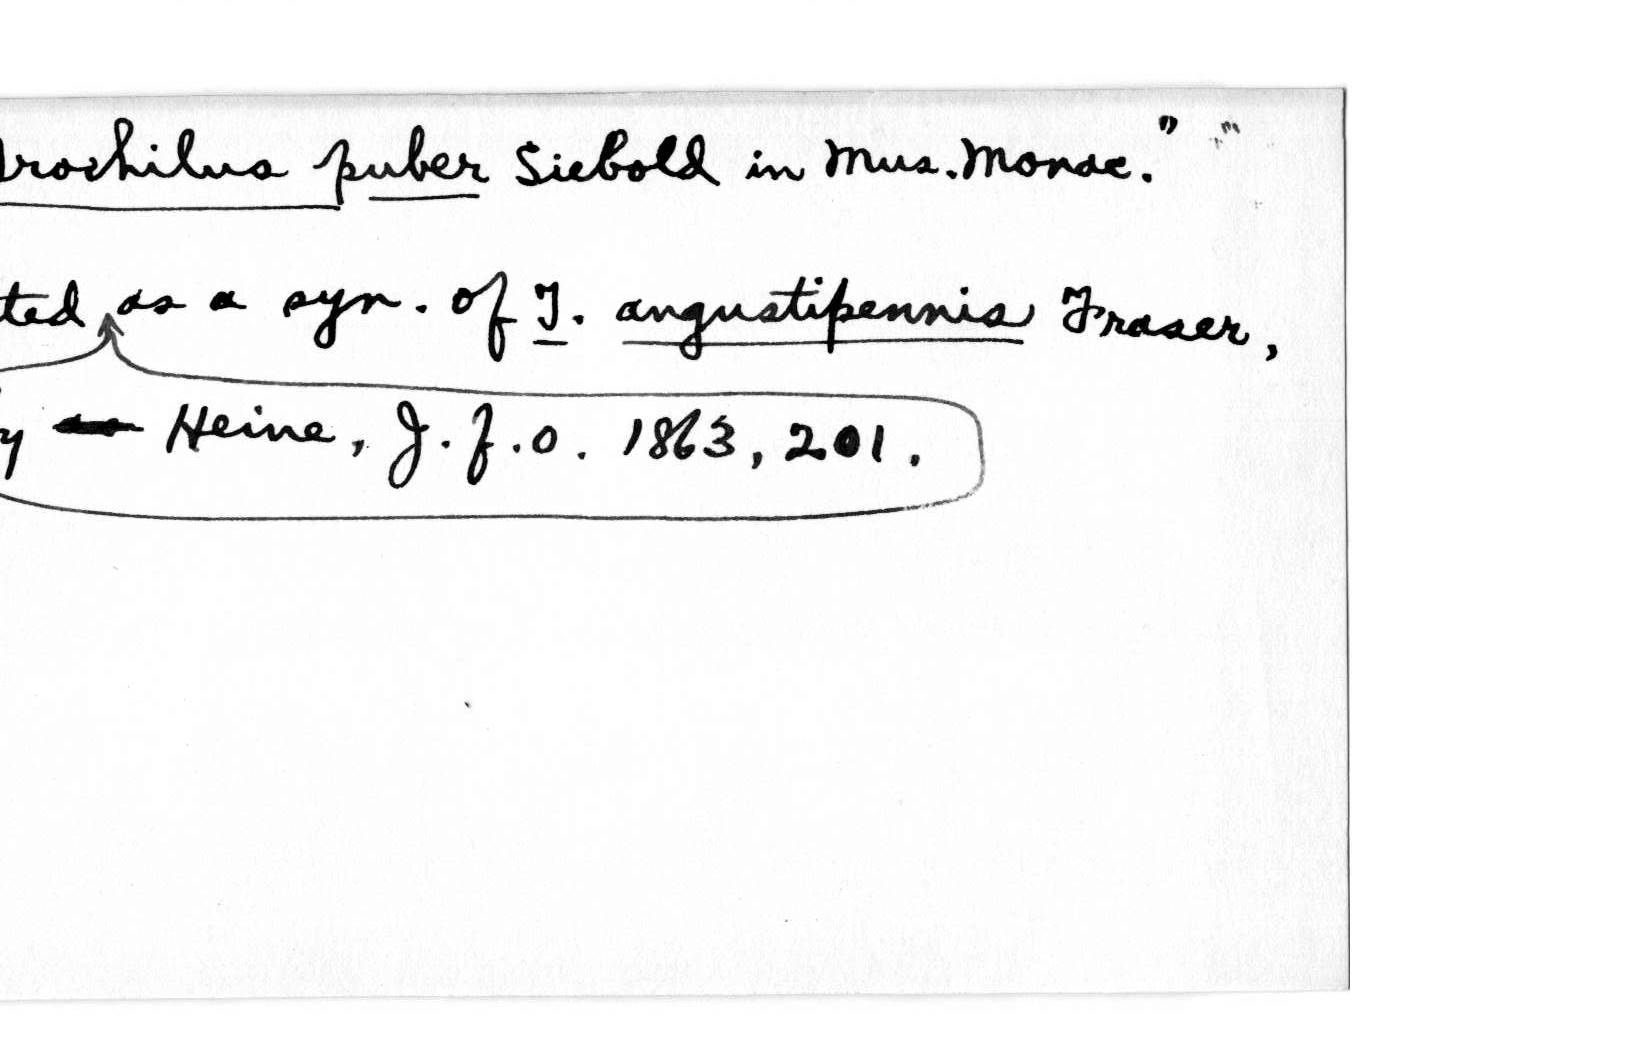 Trochilus puber Siebold in Mus. Monac."
ted as a syn. of T. angustipennis Fraser,
y Heine, J.f.O. 1863, 201.